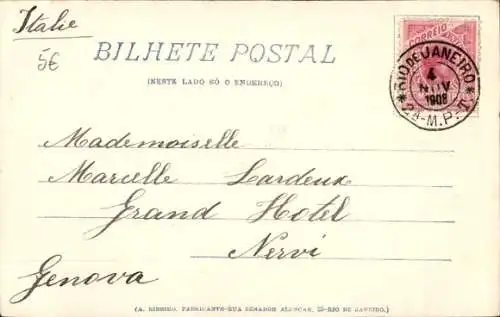 Italie
5€
BILHETE POSTAL
(NESTE LADO SÓ O ENDEREÇO)
CORREIO
RIO DE JANEIRO
4
NOV
1908
Mademoiselle
Marcelle Lardeux
Grand Hotel
Nervi
Genova
(A. RIBEIRO, FABRICANTE-RUA SENADOR ALENCAR, 25-RIO DE JANEIRO.)